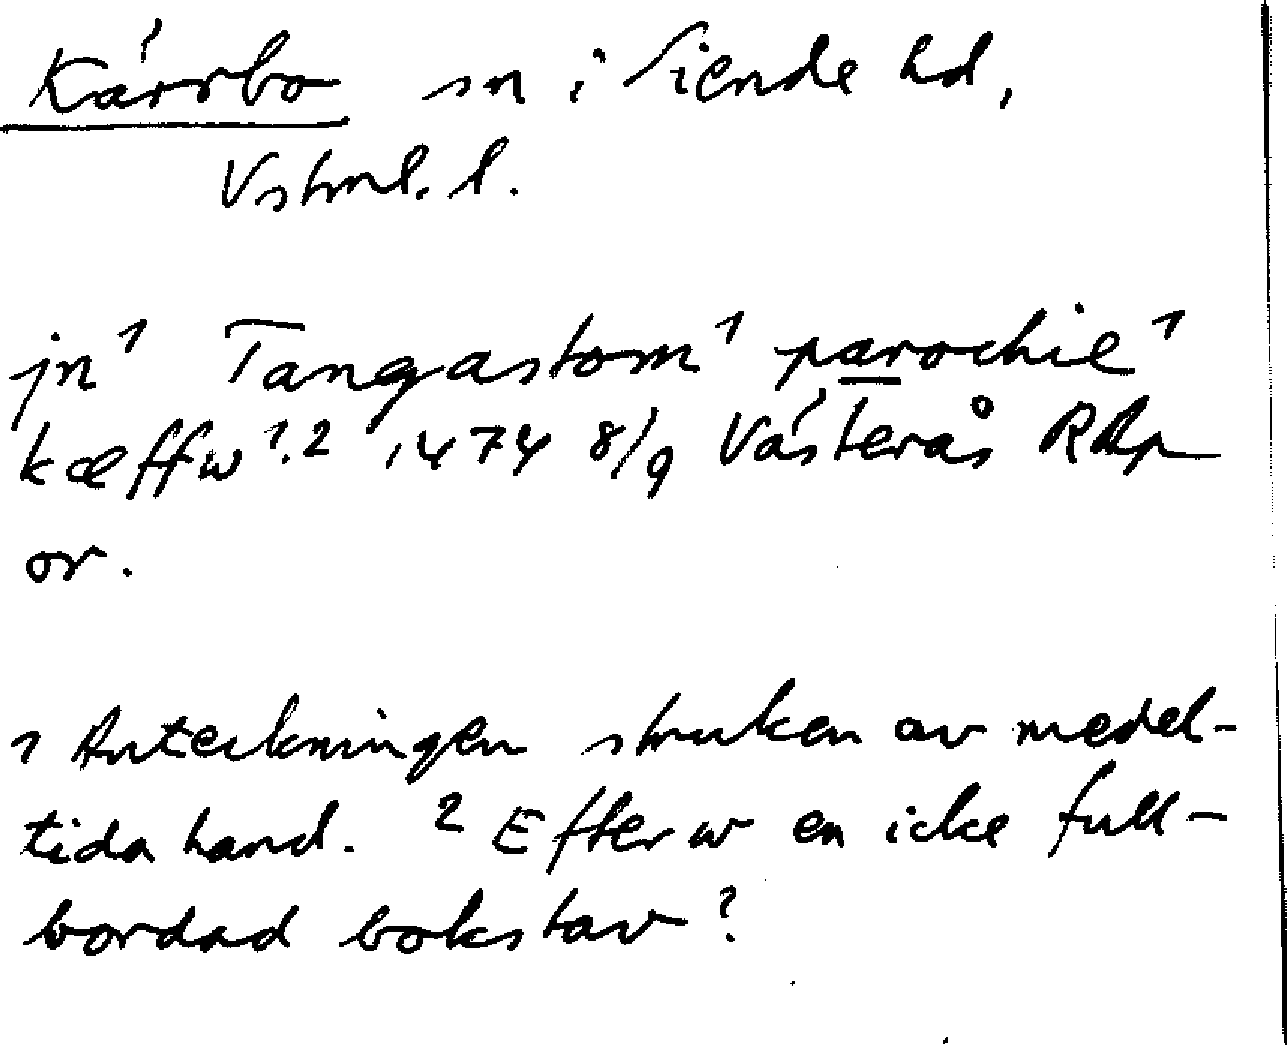 Kärrbo sn i Siende hd,
Vstml. l.
jn¹ Tangastom¹ parochie¹
kæffw¹·² 1474 8/9 Västerås RAp
or.
1 Anteckningen struken av medel-
tida hand. ² Efter w en icke full-
bordad bokstav?